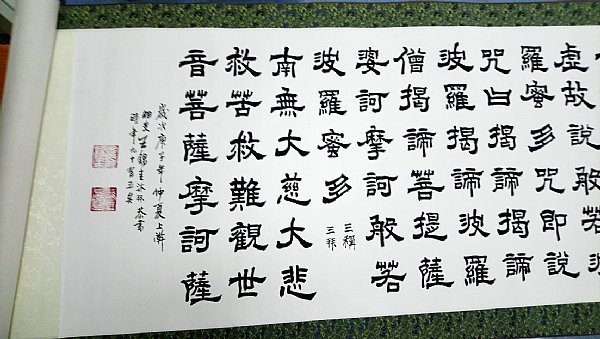 虛故說般若波
羅蜜多咒即說
咒曰揭諦揭諦
波羅揭諦波羅
僧揭諦菩提薩
婆訶摩訶般若
波羅蜜多
三稱
三拜
南無大慈大悲
救苦救難觀世
音菩薩摩訶薩
歲次庚子年仲夏上澣
恭書
時年九十有三矣